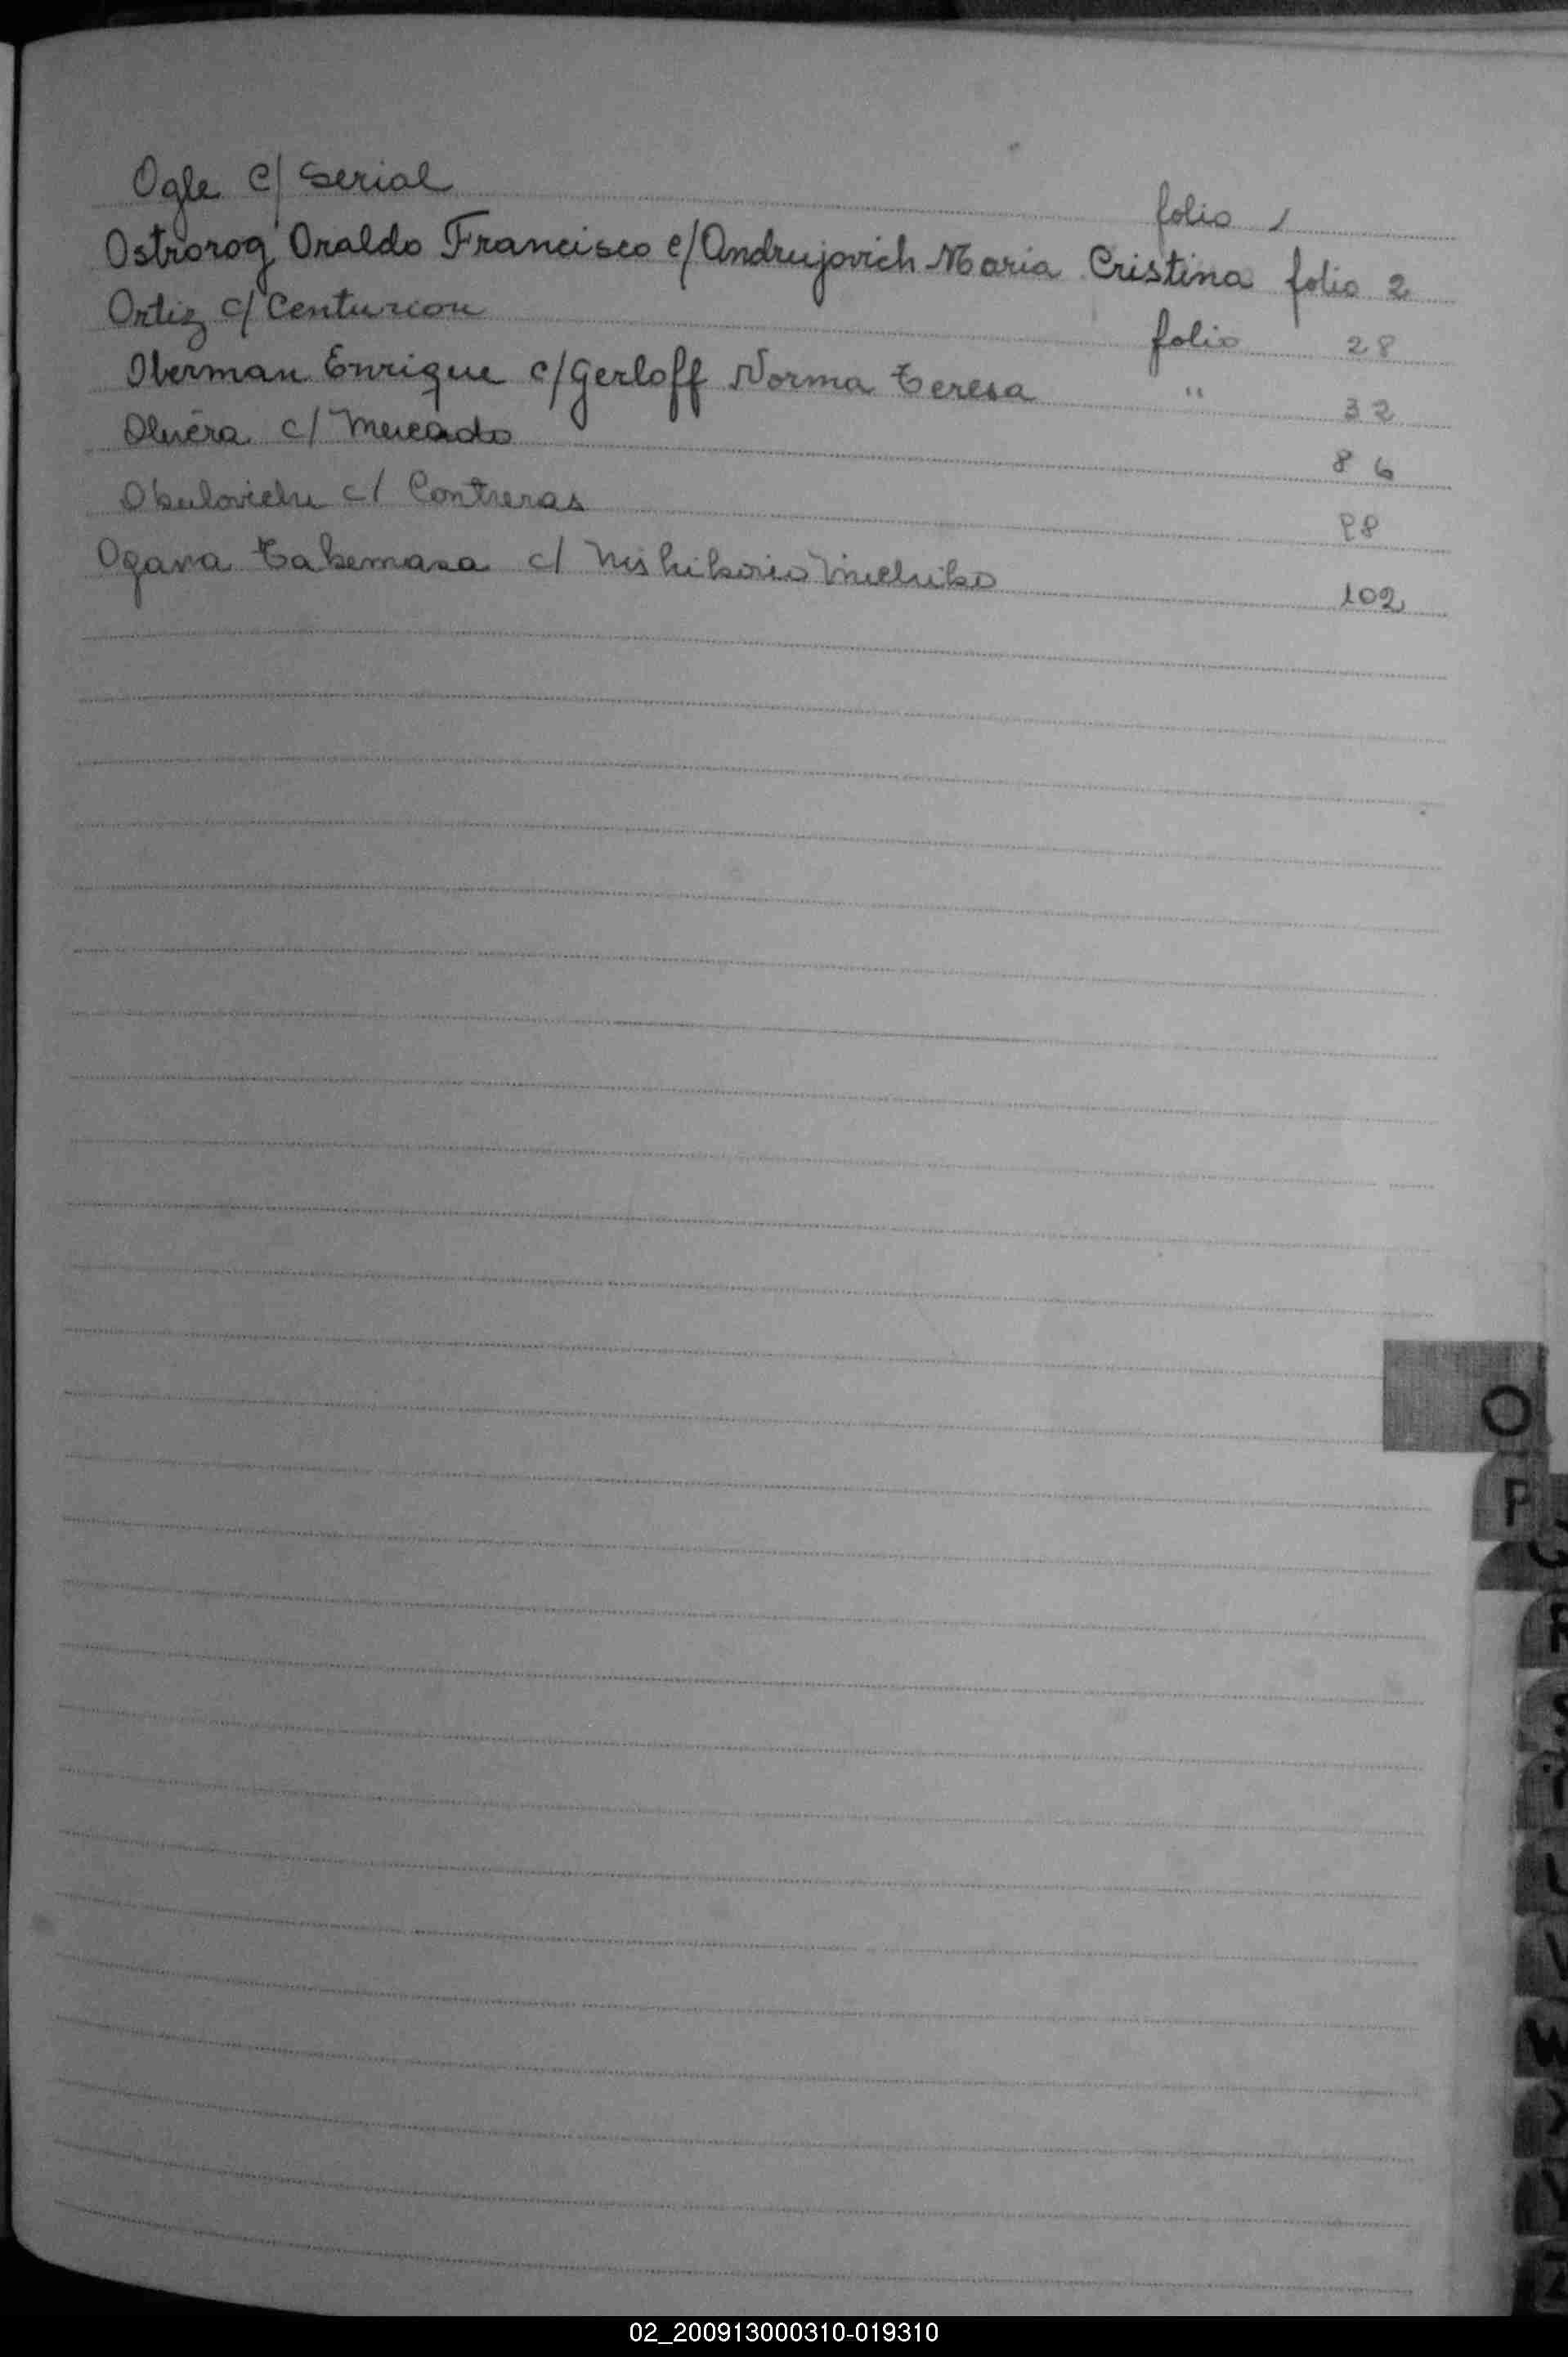 Ogle c/ Serial folio 1
Ostrorog Oraldo Francisco c/ Andrujovich Maria Cristina folio 2
Ortiz c/ Centurion folio 28
Oberman Enrique c/ Gerloff Norma Teresa " 32
Olivera c/ Mercado 86
c/ Contreras 98
Ogava Takemasa c/ Nishikorio Michiko 102
O
P
R
S
T
U
V
W
X
Y
Z
02_200913000310-019310